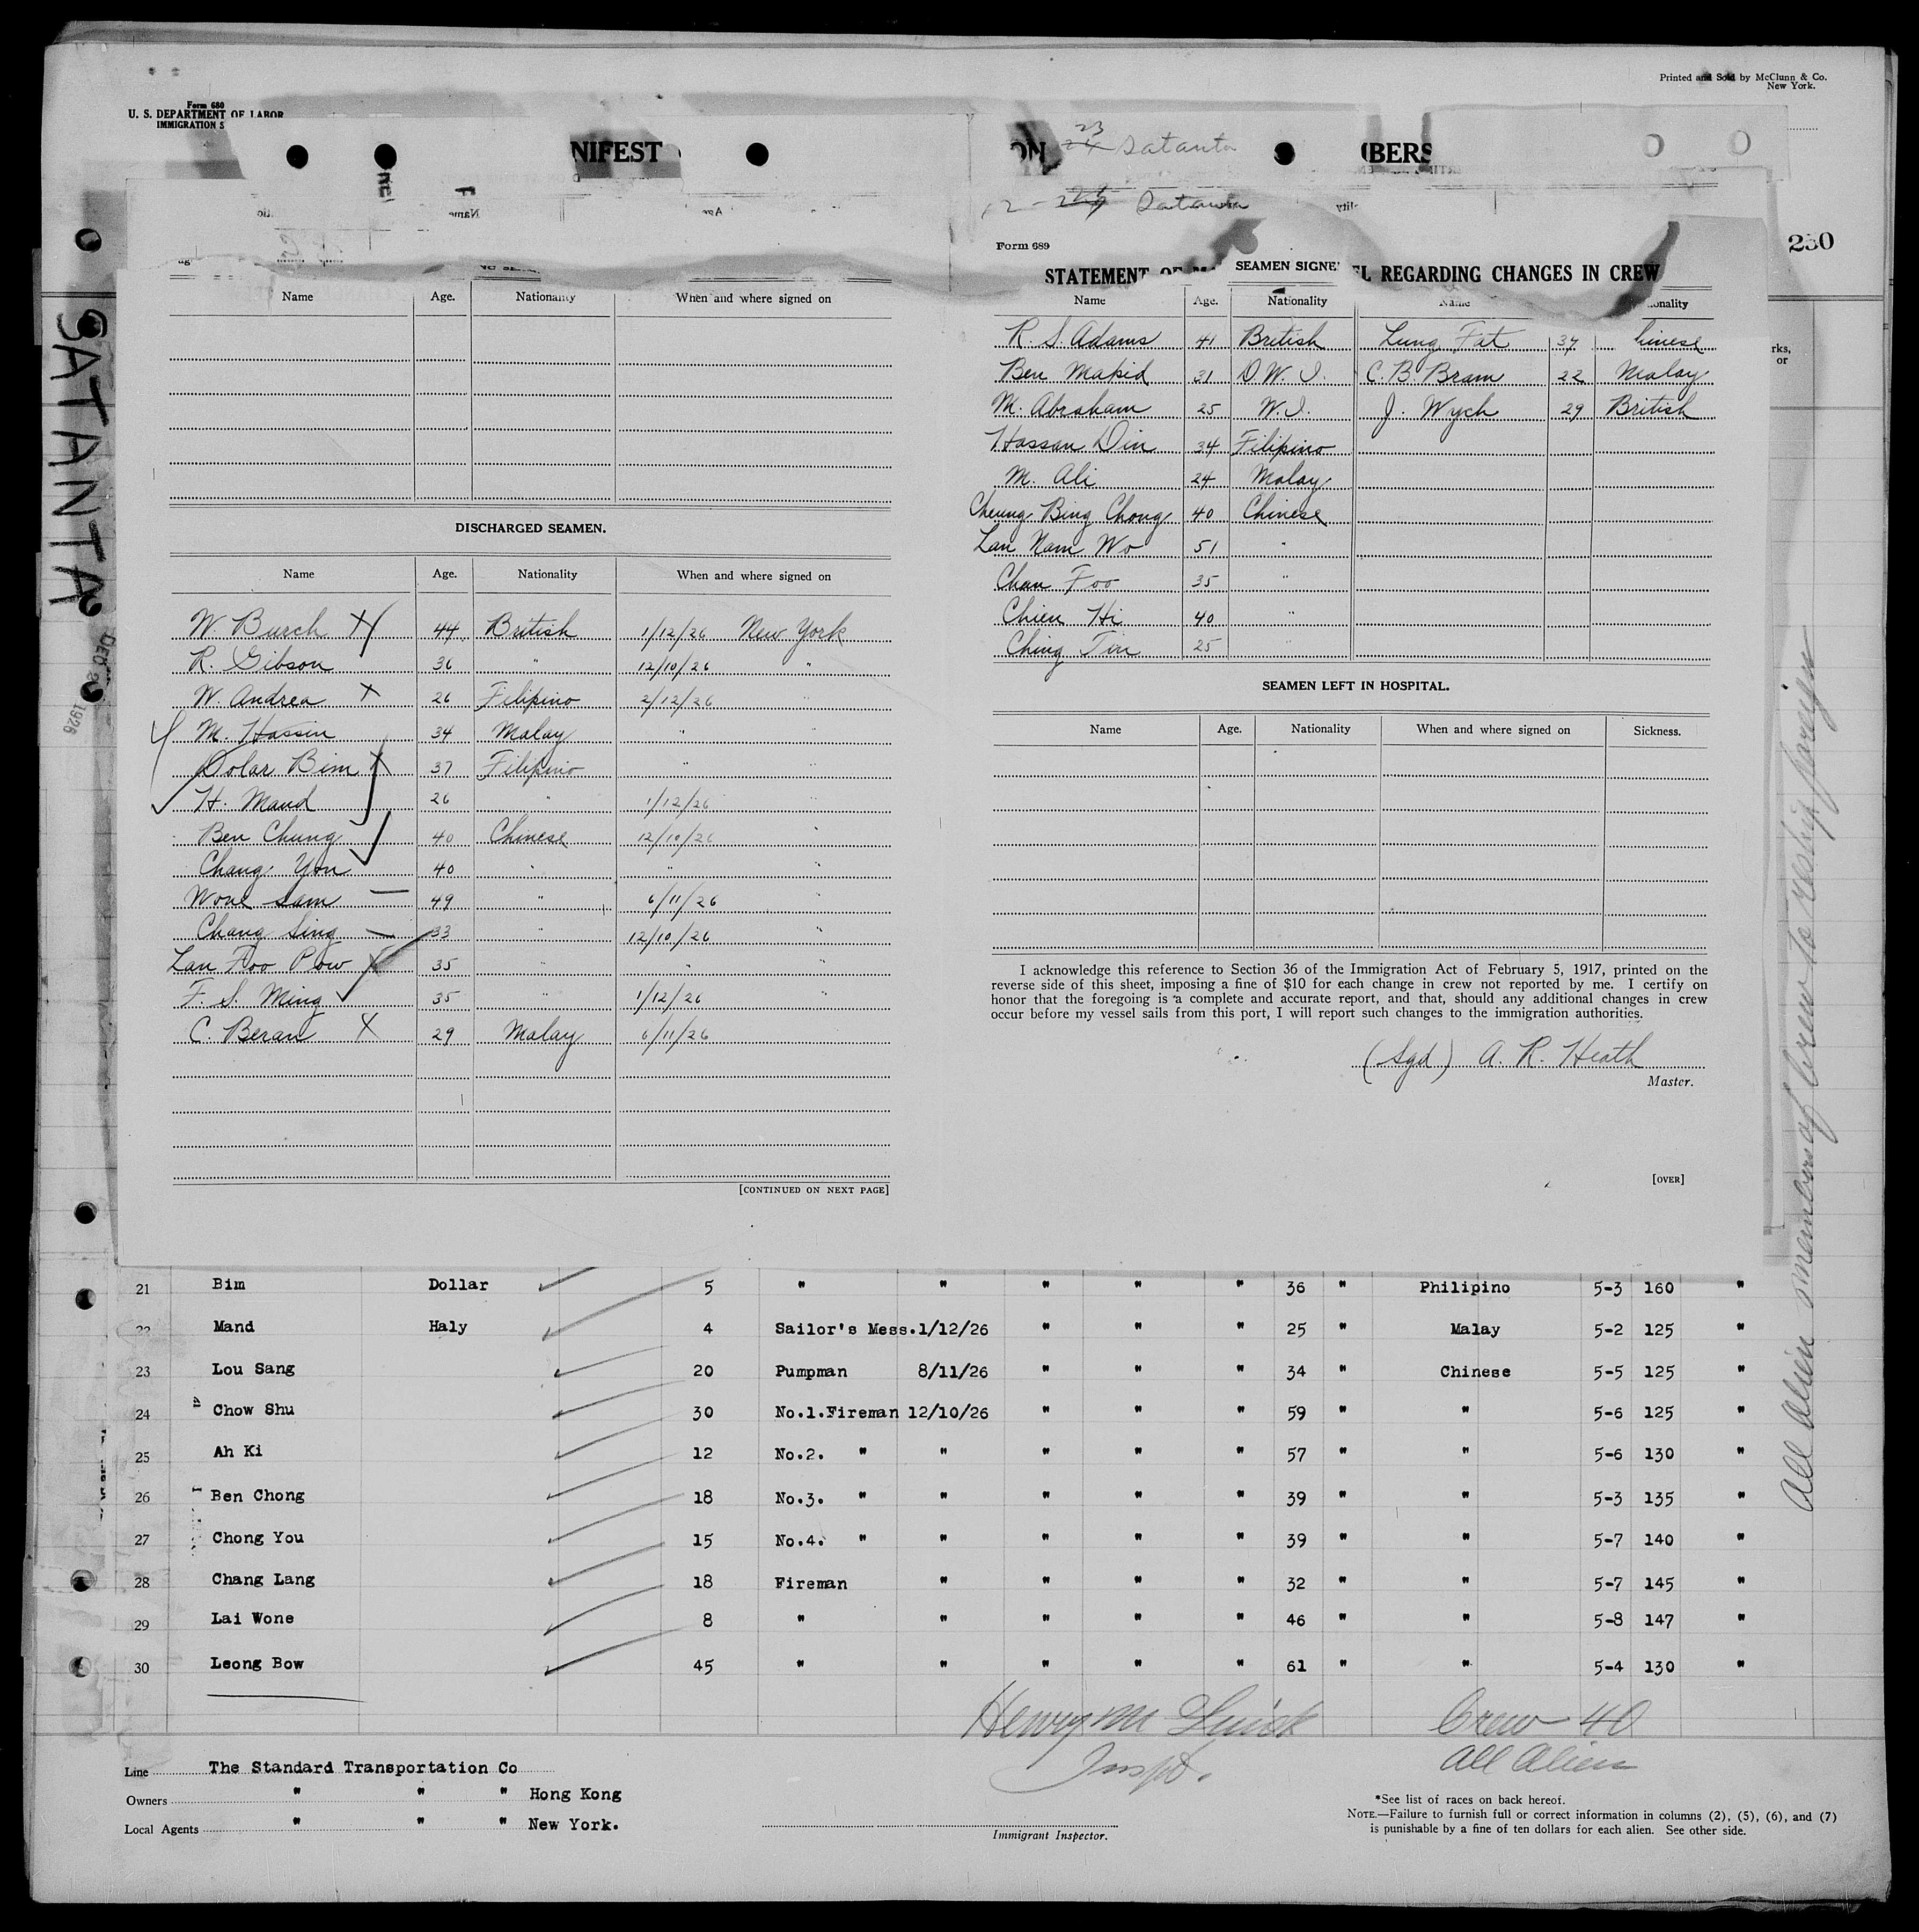 Printed and Sold by McClunn & Co.
New York.
Form 680
U. S. DEPARTMENT OF LABOR
IMMIGRATION S
NIFEST
ON
23
24 Satanta
BERS
12 - 24 Satanta
Form 689
230
STATEMENT OF REGARDING CHANGES IN CREW
SEAMEN SIGNE
SATANTA
DEC 2 1926
rks,
or
Name Age. Nationality When and where signed on
DISCHARGED SEAMEN.
Name Age. Nationality When and where signed on
W. Burch X 44 British 1/12/26 New York
R. Gibson 36 " 12/10/26 "
W. Andrea X 26 Filipino 2/12/26 "
M. Hassin 34 Malay " "
Dolar Bim X 37 Filipino " "
H. Mand 26 " 1/12/26 "
Ben Chung 40 Chinese 12/10/26 "
Chang You 40 " " "
Wone Sam 49 " 6/11/26 "
Chang Sing 33 " 12/10/26 "
Lan Foo Pow X 35 " " "
F. S. Ming 35 " 1/12/26 "
C. Beran X 29 Malay 6/11/26
[CONTINUED ON NEXT PAGE]
Name Age. Nationality Name onality
R. S. Adams 41 British Lung Fat 37 hinese
Ben Makid 31 D.W.I. C. B. Bram 22 Malay
M. Abraham 25 W.I. J. Wych 29 British
Hassan Din 34 Filipino
M. Ali 24 Malay
Cheung Bing Chong 40 Chinese
Lan Nam Wo 51 "
Chan Foo 35 "
Chien Hi 40 "
Ching Tin 25 "
SEAMEN LEFT IN HOSPITAL.
Name Age. Nationality When and where signed on Sickness.
I acknowledge this reference to Section 36 of the Immigration Act of February 5, 1917, printed on the
reverse side of this sheet, imposing a fine of $10 for each change in crew not reported by me. I certify on
honor that the foregoing is a complete and accurate report, and that, should any additional changes in crew
occur before my vessel sails from this port, I will report such changes to the immigration authorities.
(Sgd) A. R. Heath
Master.
[OVER]
All alien members of crew to reship foreign
21 Bim Dollar 5 " " " " " 36 " Philipino 5-3 160 "
22 Mand Haly 4 Sailor's Mess. 1/12/26 " " " 25 " Malay 5-2 125 "
23 Lou Sang 20 Pumpman 8/11/26 " " " 34 " Chinese 5-5 125 "
24 Chow Shu 30 No.1.Fireman 12/10/26 " " " 59 " " 5-6 125 "
25 Ah Ki 12 No.2. " " " " " 57 " " 5-6 130 "
26 Ben Chong 18 No.3. " " " " " 39 " " 5-3 135 "
27 Chong You 15 No.4. " " " " " 39 " " 5-7 140 "
28 Chang Lang 18 Fireman " " " " 32 " " 5-7 145 "
29 Lai Wone 8 " " " " " 46 " " 5-8 147 "
30 Leong Bow 45 " " " " " 61 " " 5-4 130 "
Henry M
Inspt.
Crew 40
All Alien
Line The Standard Transportation Co
Owners " " " Hong Kong
Local Agents " " " New York.
Immigrant Inspector.
*See list of races on back hereof.
NOTE.—Failure to furnish full or correct information in columns (2), (5), (6), and (7)
is punishable by a fine of ten dollars for each alien. See other side.